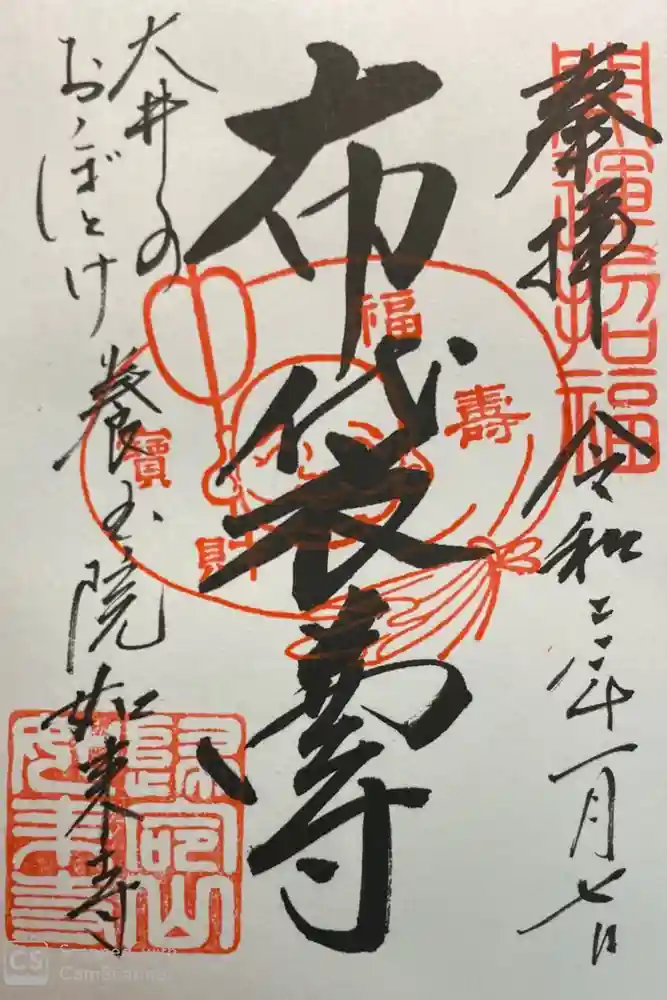 開運招福
奉拝 令和三年一月七日
布袋尊
福
壽
寶
財
大井の
おゝぼとけ 養玉院如来寺
歸命山
如來寺
CS Scanned with
CamScanner